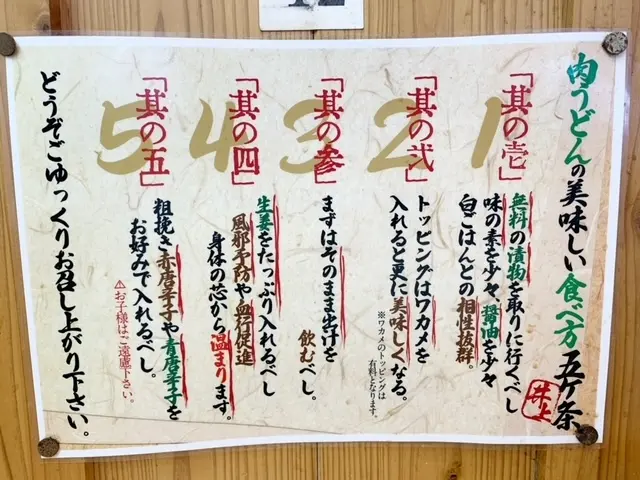 肉うどんの美味しい食べ方五ケ条
井上
1
「其の壱」
無料の漬物を取りに行くべし
味の素を少々、醤油を少々
白ごはんとの相性抜群。
2
「其の弐」
トッピングはワカメを
入れると更に美味しくなる。
※ワカメのトッピングは
有料となります。
3
「其の参」
まずはそのまま出汁を
飲むべし。
4
「其の四」
生姜をたっぷり入れるべし
風邪予防や血行促進
身体の芯から温まります。
5
「其の五」
粗挽き赤唐辛子や青唐辛子を
お好みで入れるべし。
⚠お子様はご遠慮下さい。
どうぞごゆっくりお召し上がり下さい。